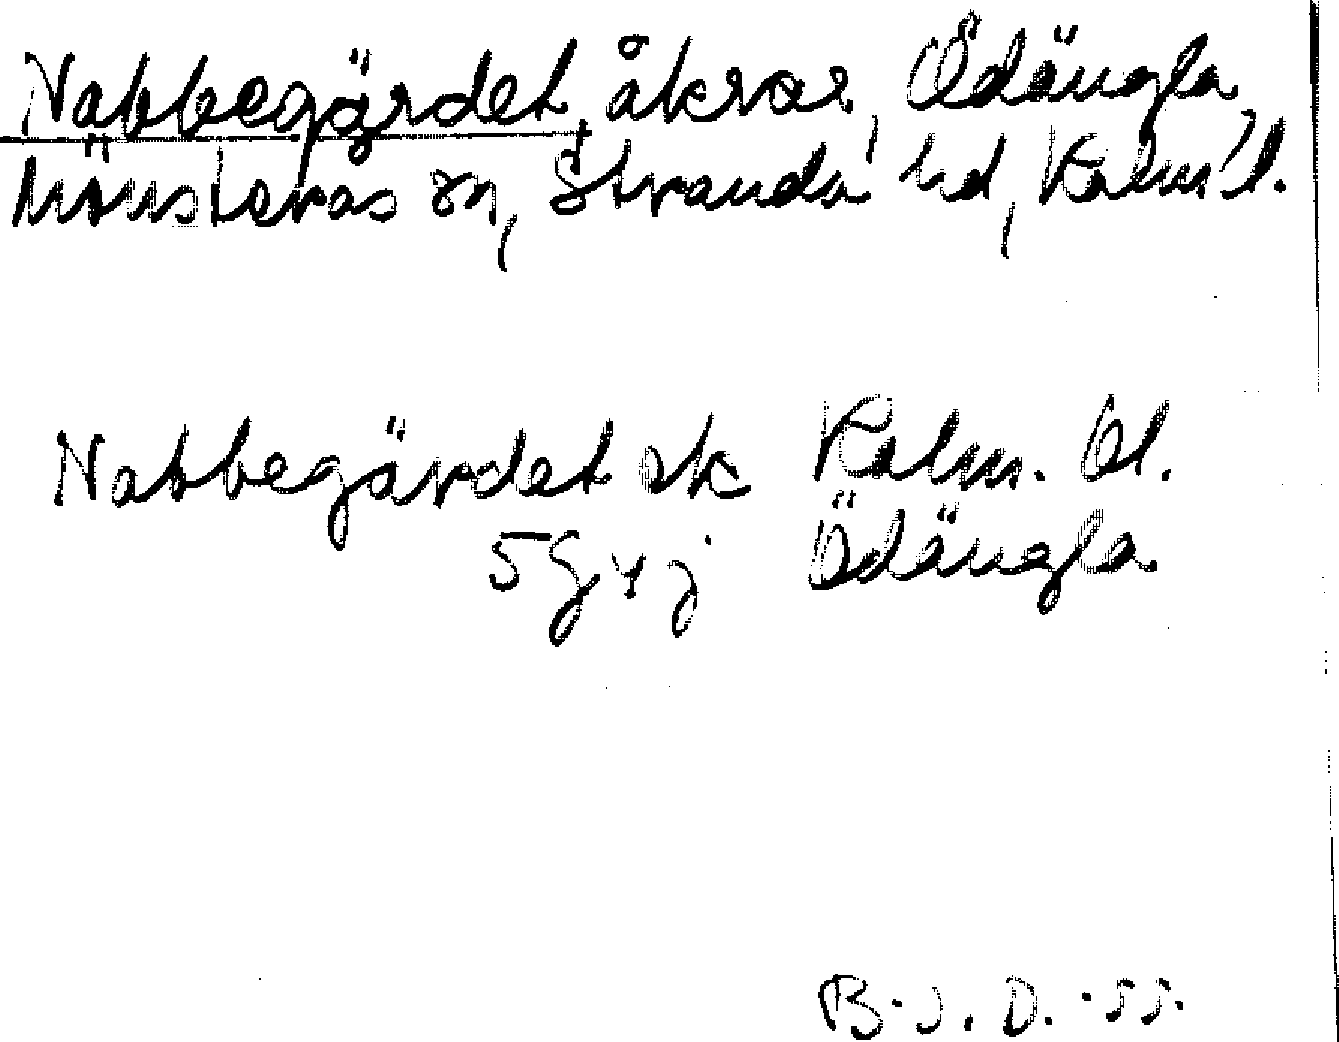 Nabbegärdet, åkrar, Ödängla,
Mönsterås sn, Stranda hd, Kalm. l.
Nabbegärdet åk Kalm. Öl.
5 G 4 j Ödängla
B.J.D. -55.